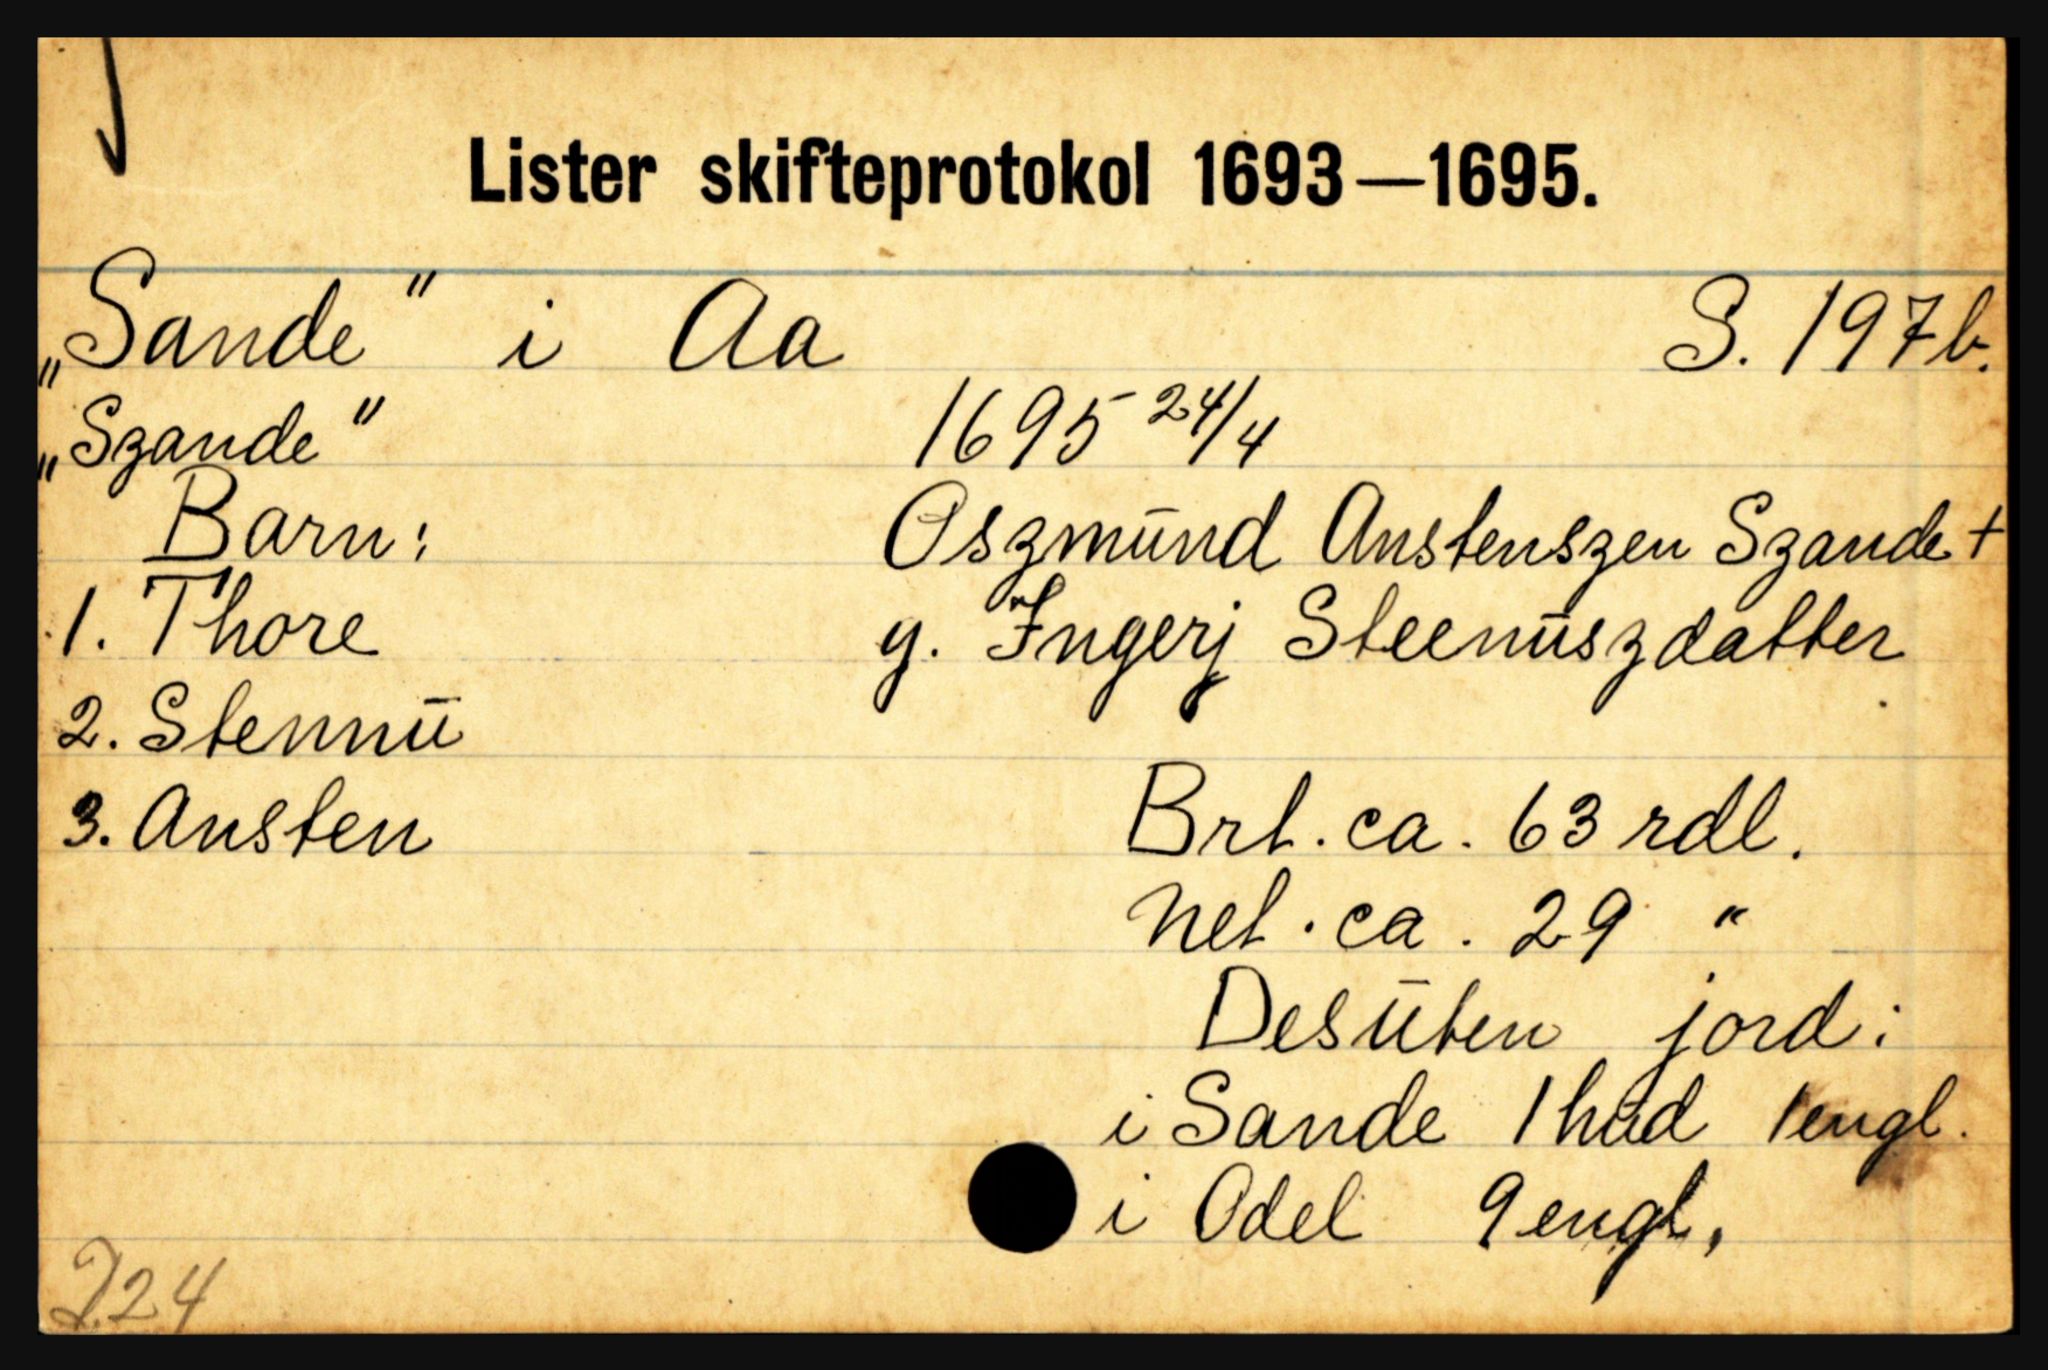 Lister skifteprotokol 1693—1695.
„Sande" i Aa S. 197b.
„Szande" 1695 24/4
Barn: Oszmund Anstenszen Szande +
1. Thore g. Ingerj Steenuszdatter
2. Stennu
3. Ansten Brt. ca. 63 rdl.
Net. ca. 29 "
Desuten jord:
i Sande 1 hud 1 engl.
i Odel 9 engl.
224